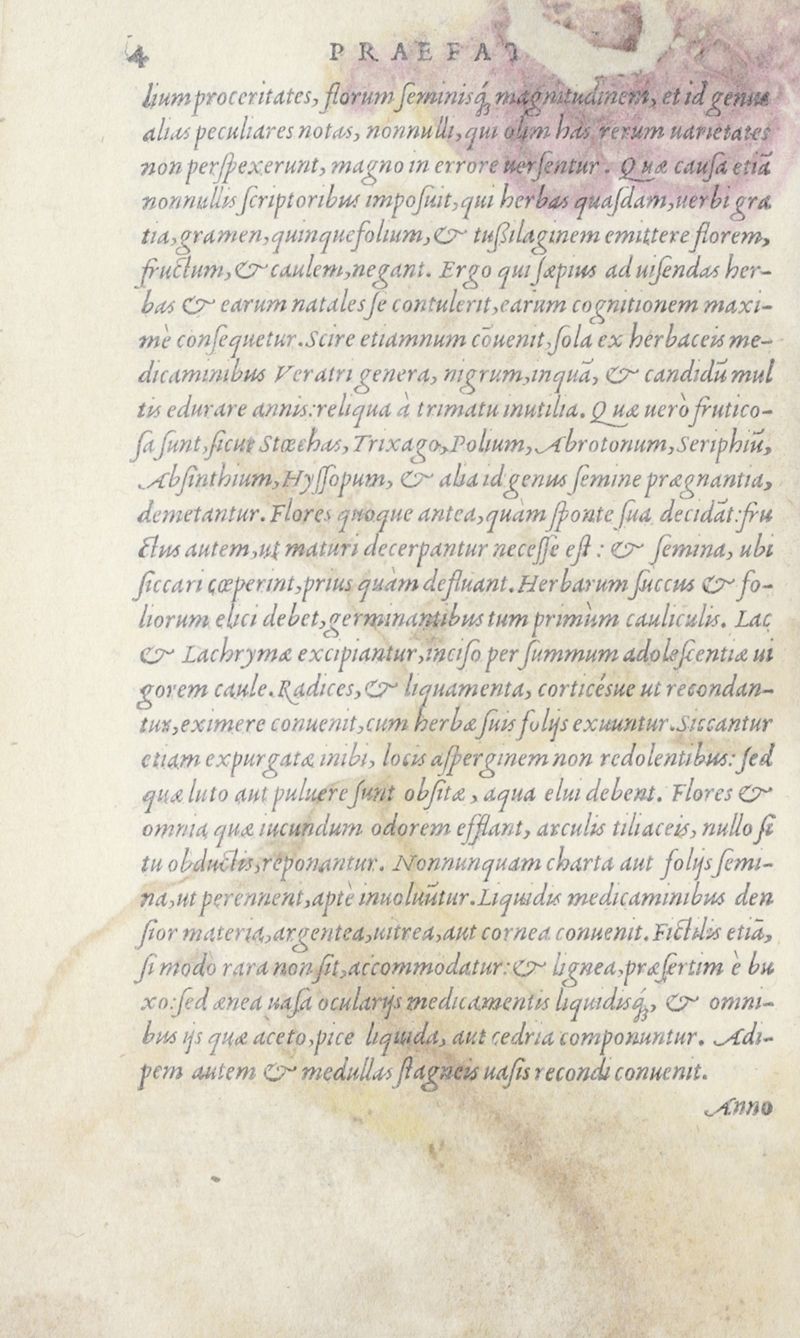 4 PRAEFAT
lium proceritates, florum seminisq́; magnitudinem, et id genus
alias peculiares notas, nonnulli, qui olim has rerum uarietates
non perspexerunt, magno in errore uersentur. Quæ causa etiã
nonnullis scriptoribus imposuit, qui herbas quasdam, uerbi gra
tia, gramen, quinquefolium, & tußilaginem emittere florem,
fructum, & caulem, negant. Ergo qui sæpius ad uisendas her-
bas & earum natales se contulerit, earum cognitionem maxi-
mè consequetur. Scire etiamnum cõuenit, sola ex herbaceis me-
dicaminibus Veratri genera, nigrum, inquã, & candidũ mul
tis edurare annis: reliqua à trimatu inutilia. Quæ uerò frutico-
sa sunt, sicut Stœchas, Trixago, Polium, Abrotonum, Seriphiũ,
Absinthium, Hyssopum, & alia id genus semine prægnantia,
demetantur. Flores quoque antea, quàm sponte sua decidãt: fru
ctus autem, ut maturi decerpantur necesse est: & semina, ubi
siccari cœperint, prius quàm defluant. Herbarum succus & fo-
liorum elici debet, germinantibus tum primùm cauliculis. Lac
& Lachrymæ excipiantur, inciso per summum adolescentiæ ui
gorem caule. Radices, & liquamenta, corticésue ut recondan-
tur, eximere conuenit, cum herbæ suis folijs exuuntur. Siccantur
etiam expurgatæ inibi, locis asperginem non redolentibus: sed
quæ luto aut puluere sunt obsitæ, aqua elui debent. Flores &
omnia quæ iucundum odorem efflant, arculis tiliaceis, nullo si
tu obductis, reponantur. Nonnunquam charta aut folijs semi-
na, ut perennent, aptè inuoluũtur. Liquidis medicaminibus den
sior materia, argentea, uitrea, aut cornea conuenit. Fictilis etiã,
si modò rara non sit, accommodatur: & lignea, præsertim è bu
xo: sed ænea uasa ocularijs medicamentis liquidisq́;, & omni-
bus ijs quæ aceto, pice liquida, aut cedria componuntur. Adi-
pem autem & medullas stagneis uasis recondi conuenit.
Anno